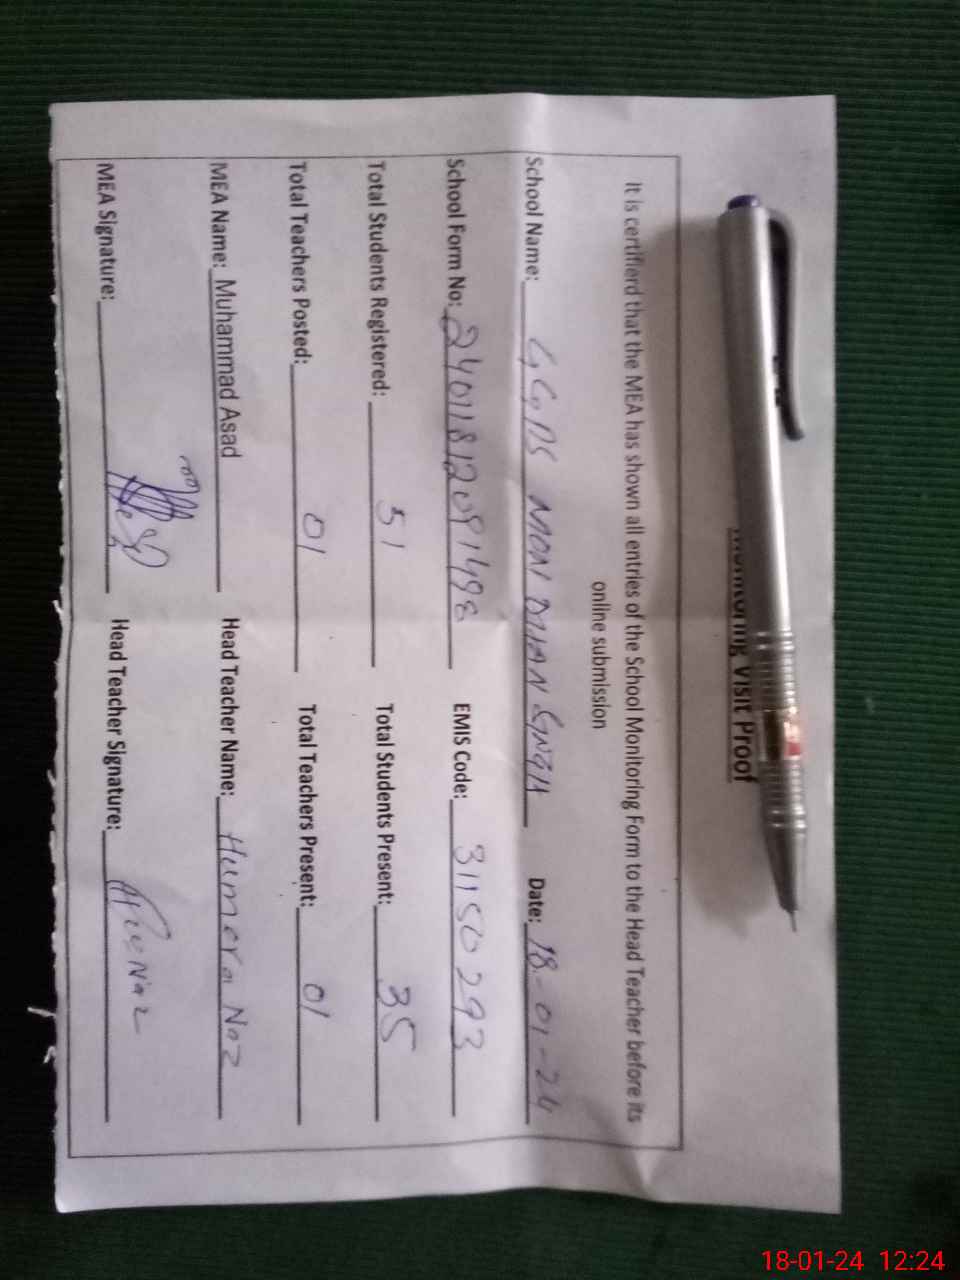 Monitoring Visit Proof
It is certifierd that the MEA has shown all entries of the School Monitoring Form to the Head Teacher before its
online submission
School Name: GGPS Date: 18-01-24
School Form No: 24011812091498 EMIS Code: 31150293
Total Students Registered: 51 Total Students Present: 35
Total Teachers Posted: 01 Total Teachers Present: 01
MEA Name: Muhammad Asad Head Teacher Name: Humera Naz
MEA Signature: Head Teacher Signature:
18-01-24 12:24